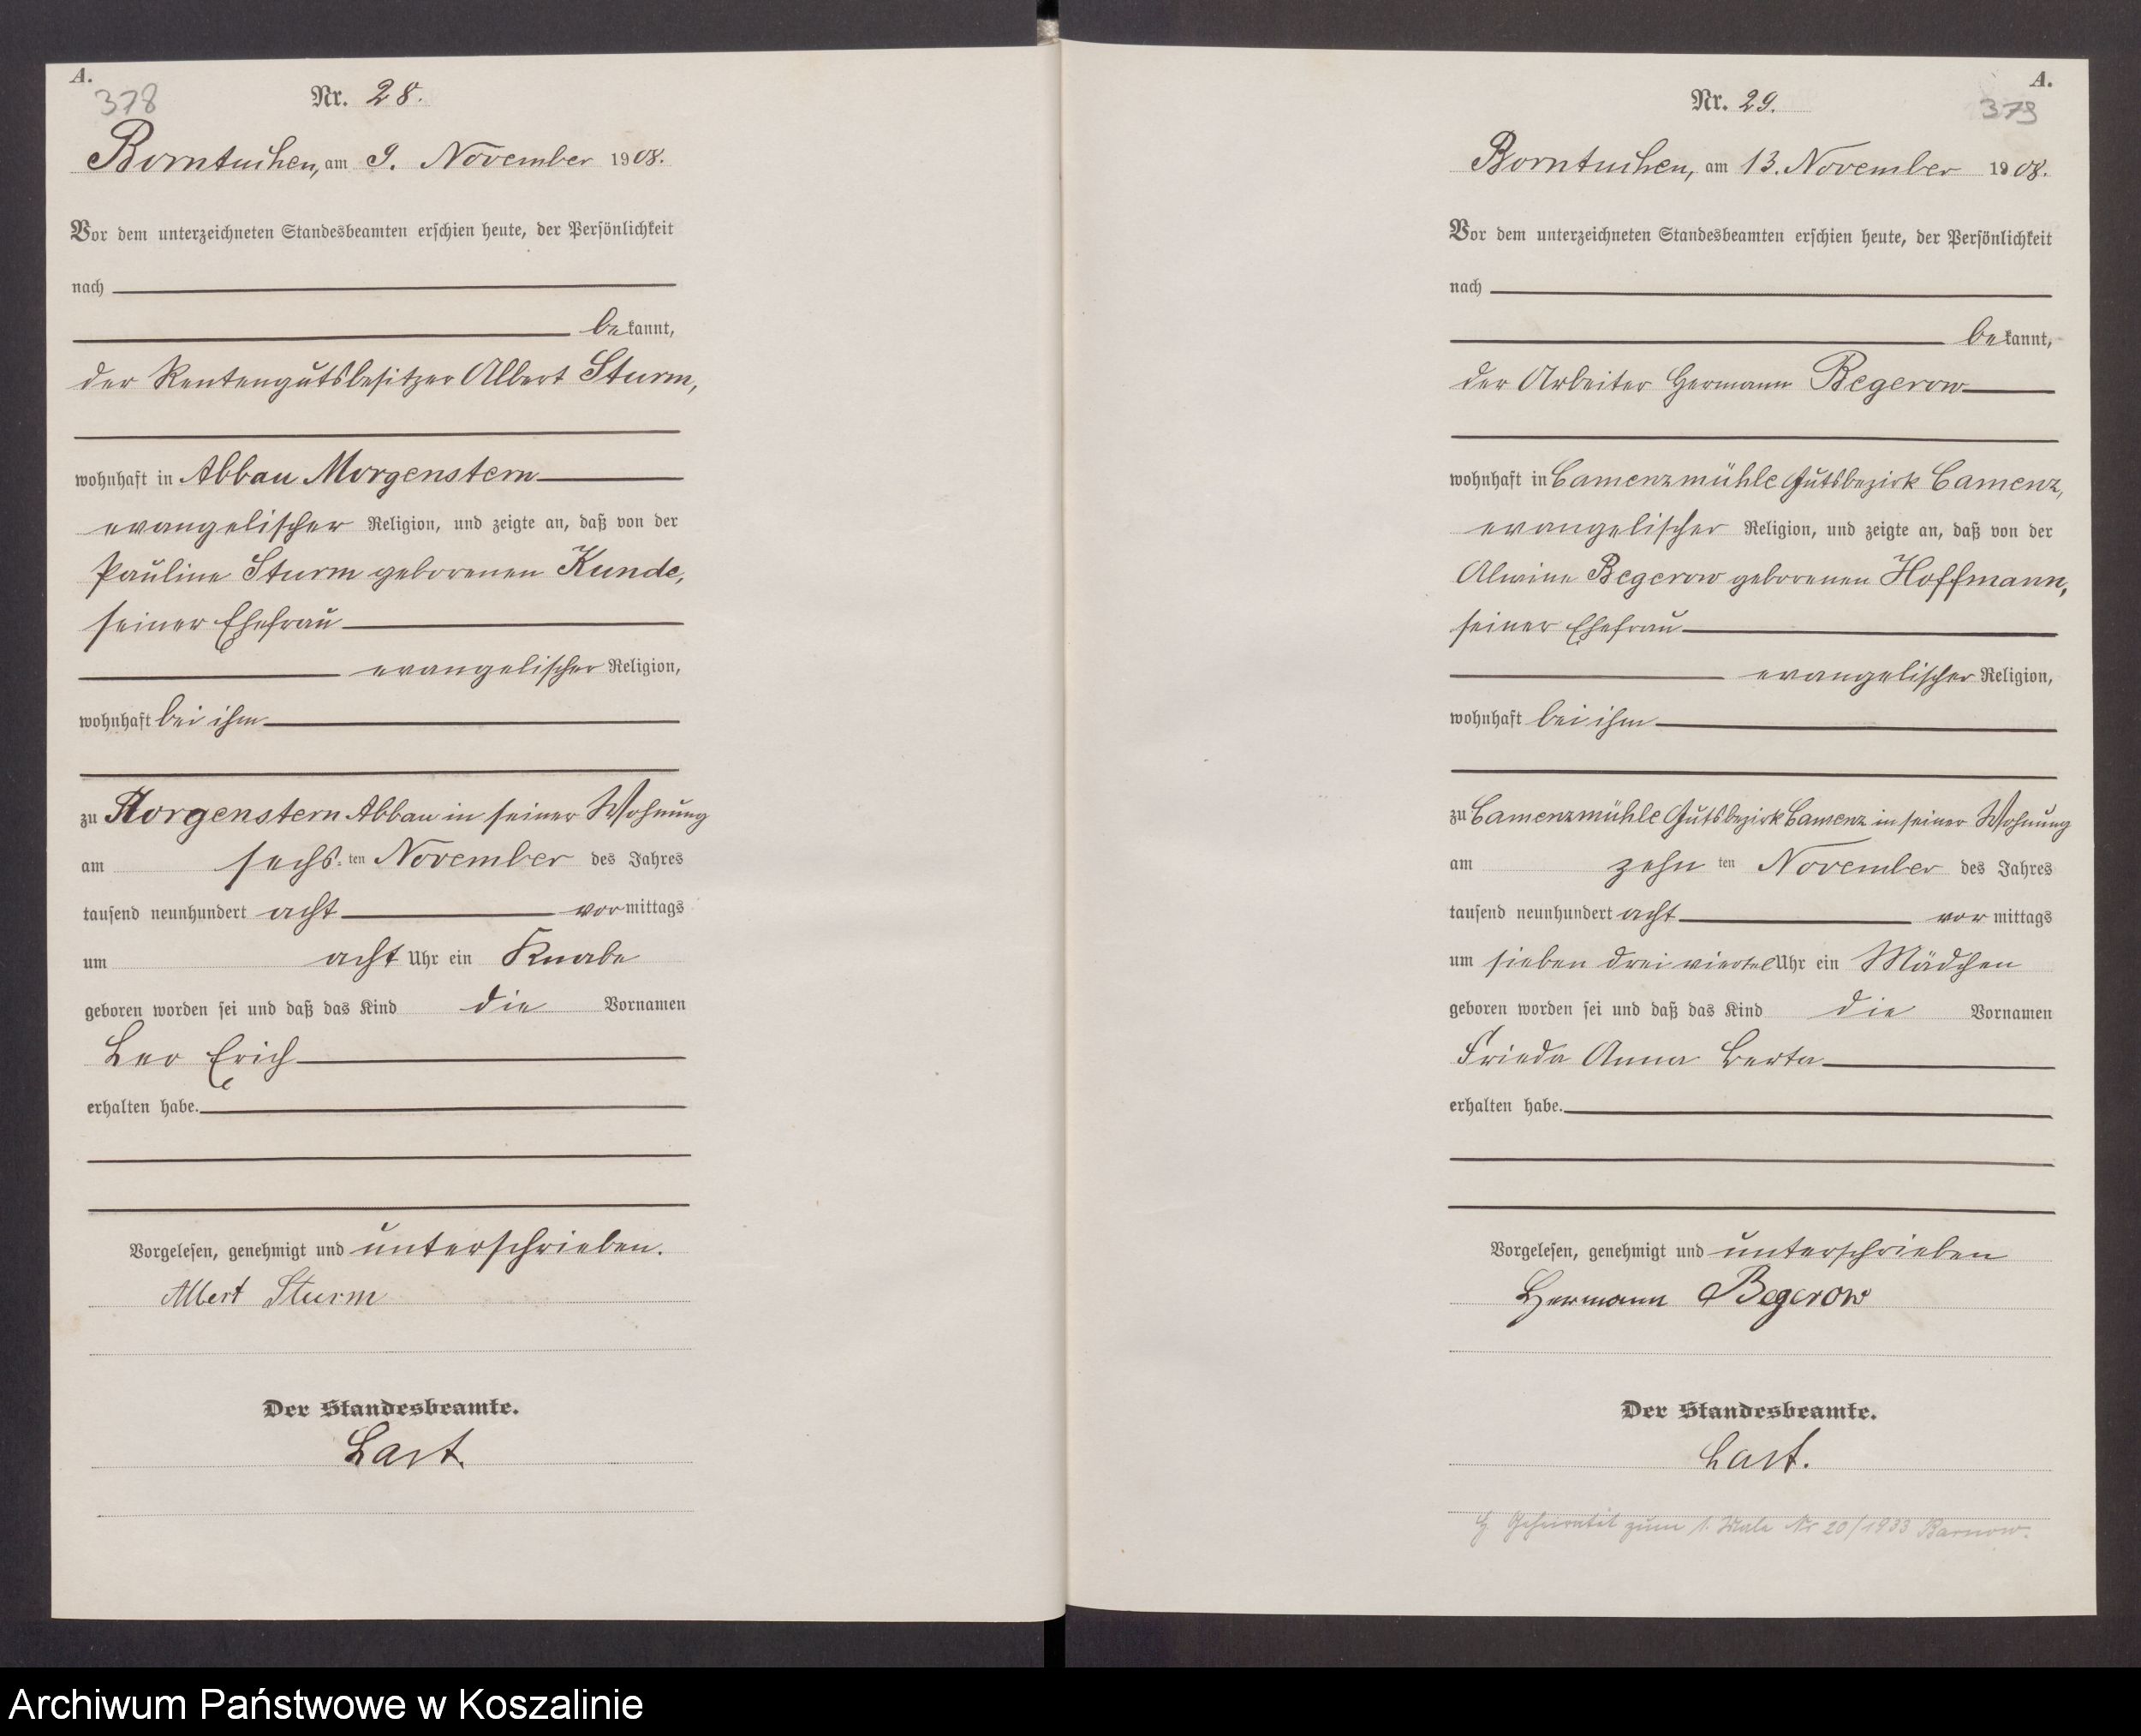 A.
378
Nr. 28.
Borntuchen, am 9. November 1908.
Vor dem unterzeichneten Standesbeamten erschien heute, der Persönlichkeit
nach
bekannt,
der Rentengutsbesitzer Albert Sturm,
wohnhaft in Abbau Morgenstern
evangelischer Religion, und zeigte an, daß von der
Pauline Sturm geborenen Kunde,
seiner Ehefrau
evangelischer Religion,
wohnhaft bei ihm
zu Morgenstern Abbau in seiner Wohnung
am sechs-ten November des Jahres
tausend neunhundert acht vormittags
um acht Uhr ein Knabe
geboren worden sei und daß das Kind die Vornamen
Leo Erich
erhalten habe.
Vorgelesen, genehmigt und unterschrieben.
Albert Sturm
Der Standesbeamte.
Last.
A.
379
Nr. 29.
Borntuchen, am 13. November 1908.
Vor dem unterzeichneten Standesbeamten erschien heute, der Persönlichkeit
nach
bekannt,
der Arbeiter Hermann Begerow
wohnhaft in Camenzmühle Gutsbezirk Camenz,
evangelischer Religion, und zeigte an, daß von der
Alwine Begerow geborenen Hoffmann,
seiner Ehefrau
evangelischer Religion,
wohnhaft bei ihm
zu Camenzmühle Gutsbezirk Camenz in seiner Wohnung
am zehn ten November des Jahres
tausend neunhundert acht vormittags
um sieben drei viertel Uhr ein Mädchen
geboren worden sei und daß das Kind die Vornamen
Frieda Anna Berta
erhalten habe.
Vorgelesen, genehmigt und unterschrieben
Hermann Begerow
Der Standesbeamte.
Last.
Geheiratet zum 1. Male Nr 20/1933 Barnow.
Archiwum Państwowe w Koszalinie